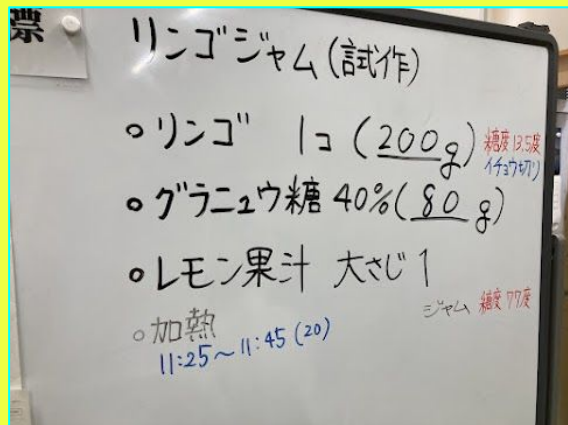 票
リンゴジャム(試作)
○リンゴ 1コ(200g)
糖度13.5度
イチョウ切り
○グラニュウ糖 40%(80g)
○レモン果汁 大さじ1
ジャム 糖度77度
○加熱
11:25~11:45(20)